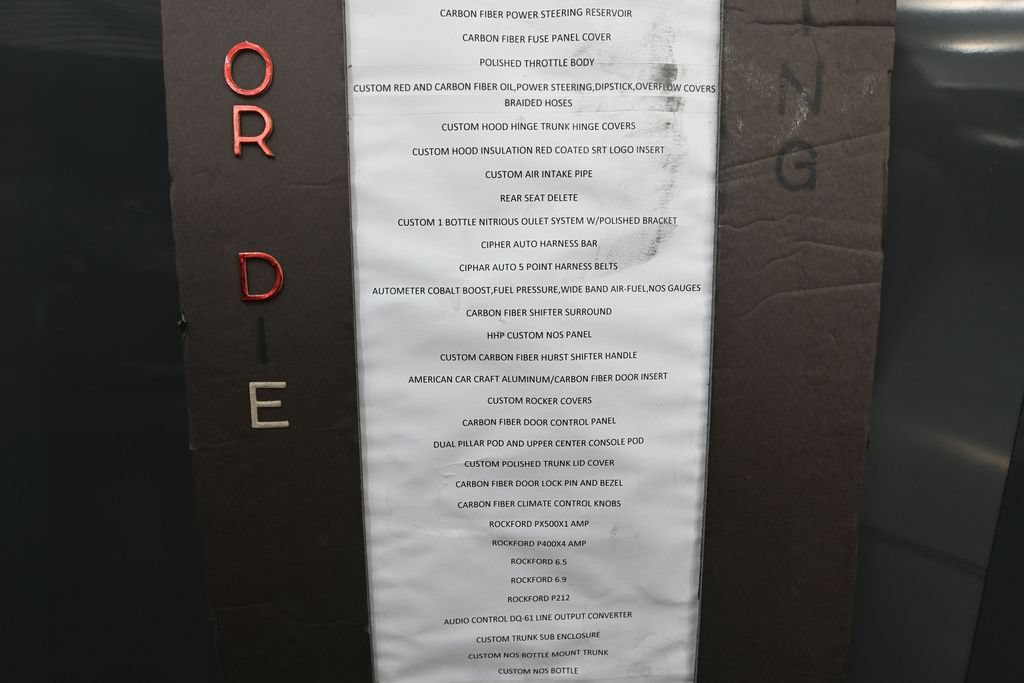 OR
DIE
NG
CARBON FIBER POWER STEERING RESERVOIR
CARBON FIBER FUSE PANEL COVER
POLISHED THROTTLE BODY
CUSTOM RED AND CARBON FIBER OIL,POWER STEERING,DIPSTICK,OVERFLOW COVERS
BRAIDED HOSES
CUSTOM HOOD HINGE TRUNK HINGE COVERS
CUSTOM HOOD INSULATION RED COATED SRT LOGO INSERT
CUSTOM AIR INTAKE PIPE
REAR SEAT DELETE
CUSTOM 1 BOTTLE NITRIOUS OULET SYSTEM W/POLISHED BRACKET
CIPHER AUTO HARNESS BAR
CIPHAR AUTO 5 POINT HARNESS BELTS
AUTOMETER COBALT BOOST,FUEL PRESSURE,WIDE BAND AIR-FUEL,NOS GAUGES
CARBON FIBER SHIFTER SURROUND
HHP CUSTOM NOS PANEL
CUSTOM CARBON FIBER HURST SHIFTER HANDLE
AMERICAN CAR CRAFT ALUMINUM/CARBON FIBER DOOR INSERT
CUSTOM ROCKER COVERS
CARBON FIBER DOOR CONTROL PANEL
DUAL PILLAR POD AND UPPER CENTER CONSOLE POD
CUSTOM POLISHED TRUNK LID COVER
CARBON FIBER DOOR LOCK PIN AND BEZEL
CARBON FIBER CLIMATE CONTROL KNOBS
ROCKFORD PX500X1 AMP
ROCKFORD P400X4 AMP
ROCKFORD 6.5
ROCKFORD 6.9
ROCKFORD P212
AUDIO CONTROL DQ-61 LINE OUTPUT CONVERTER
CUSTOM TRUNK SUB ENCLOSURE
CUSTOM NOS BOTTLE MOUNT TRUNK
CUSTOM NOS BOTTLE